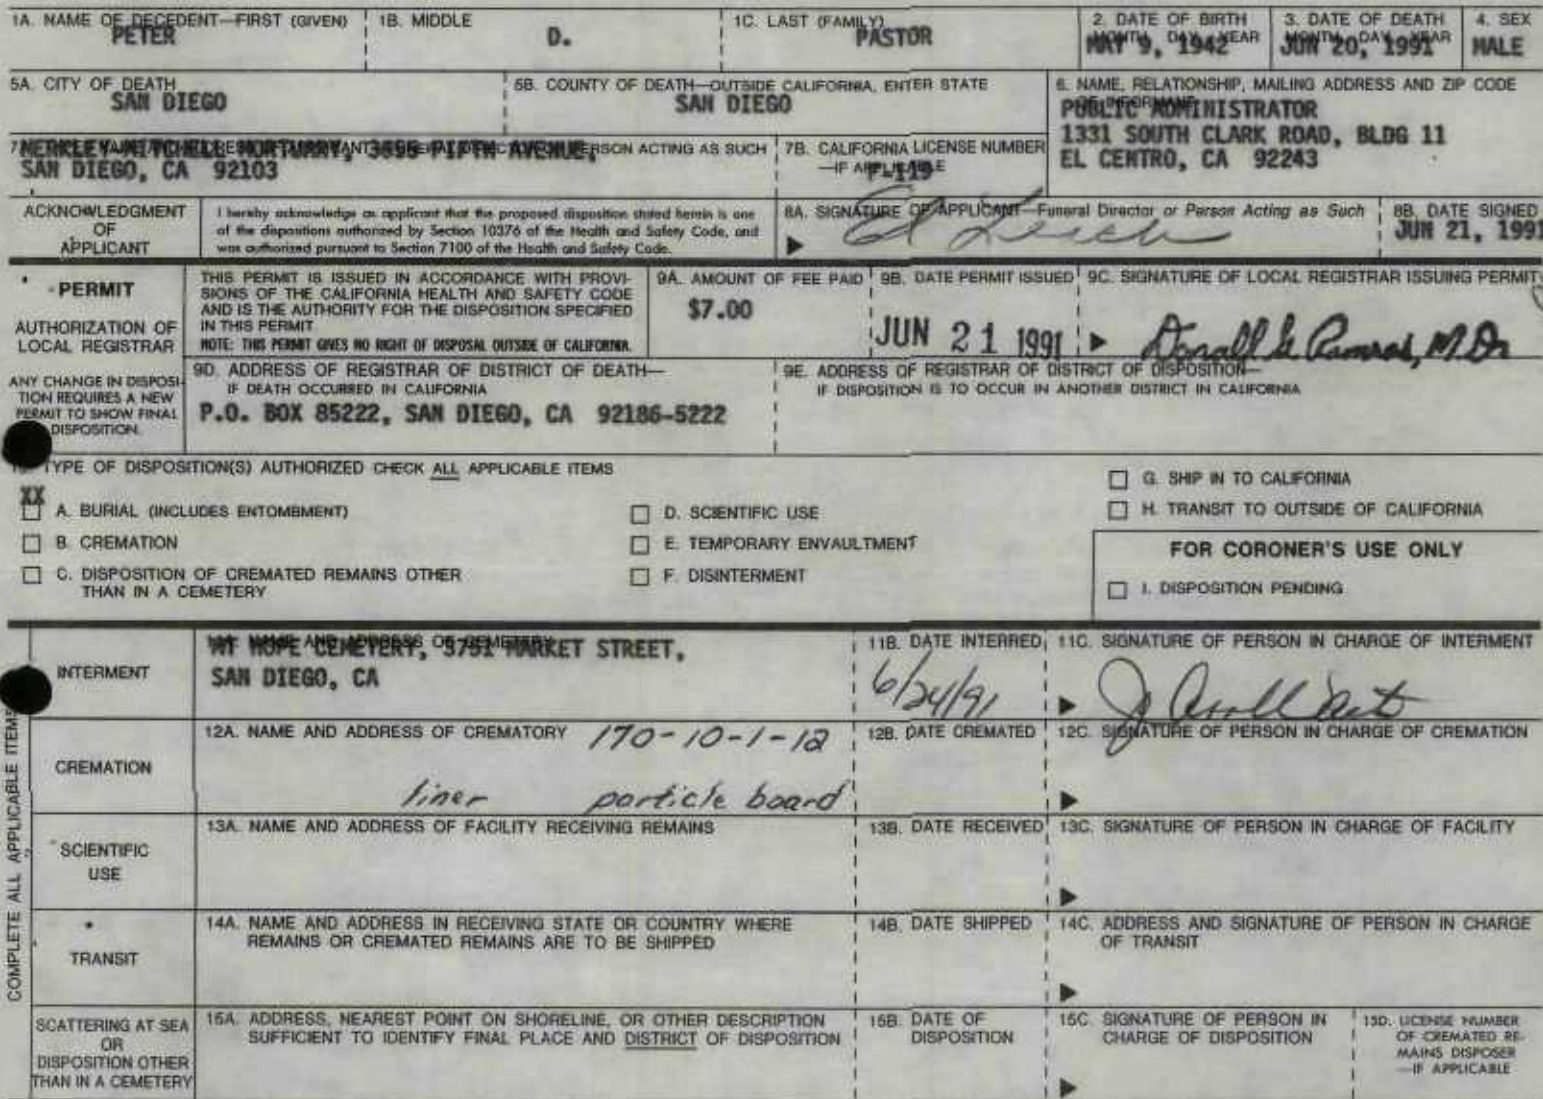 1A. NAME OF DECEDENT—FIRST (GIVEN) 1B. MIDDLE 1C. LAST (FAMILY) 2. DATE OF BIRTH 3. DATE OF DEATH 4. SEX
MONTH, DAY, YEAR MONTH, DAY, YEAR
PETER D. PASTOR MAY 9, 1942 JUN 20, 1991 MALE
5A. CITY OF DEATH 5B. COUNTY OF DEATH—OUTSIDE CALIFORNIA, ENTER STATE 6. NAME, RELATIONSHIP, MAILING ADDRESS AND ZIP CODE
OF INFORMANT
SAN DIEGO SAN DIEGO PUBLIC ADMINISTRATOR
1331 SOUTH CLARK ROAD, BLDG 11
EL CENTRO, CA 92243
PERSON ACTING AS SUCH 7B. CALIFORNIA LICENSE NUMBER
—IF APPLICABLE
MERKLEY-MITCHELL MORTUARY, 3655 FIFTH AVENUE,
SAN DIEGO, CA 92103 F-119
ACKNOWLEDGMENT
OF
APPLICANT
I hereby acknowledge as applicant that the proposed disposition stated herein is one
of the dispositions authorized by Section 10376 of the Health and Safety Code, and
was authorized pursuant to Section 7100 of the Health and Safety Code.
8A. SIGNATURE OF APPLICANT—Funeral Director or Person Acting as Such 8B. DATE SIGNED
Ed JUN 21, 1991
PERMIT
AUTHORIZATION OF
LOCAL REGISTRAR
THIS PERMIT IS ISSUED IN ACCORDANCE WITH PROVI-
SIONS OF THE CALIFORNIA HEALTH AND SAFETY CODE
AND IS THE AUTHORITY FOR THE DISPOSITION SPECIFIED
IN THIS PERMIT
NOTE: THIS PERMIT GIVES NO RIGHT OF DISPOSAL OUTSIDE OF CALIFORNIA.
9A. AMOUNT OF FEE PAID 9B. DATE PERMIT ISSUED 9C. SIGNATURE OF LOCAL REGISTRAR ISSUING PERMIT
$7.00 JUN 21 1991 Donald G. Ramras, M.D.
ANY CHANGE IN DISPOSI-
TION REQUIRES A NEW
PERMIT TO SHOW FINAL
DISPOSITION.
9D. ADDRESS OF REGISTRAR OF DISTRICT OF DEATH—
IF DEATH OCCURRED IN CALIFORNIA
P.O. BOX 85222, SAN DIEGO, CA 92186-5222
9E. ADDRESS OF REGISTRAR OF DISTRICT OF DISPOSITION—
IF DISPOSITION IS TO OCCUR IN ANOTHER DISTRICT IN CALIFORNIA
TYPE OF DISPOSITION(S) AUTHORIZED CHECK ALL APPLICABLE ITEMS
XX
A. BURIAL (INCLUDES ENTOMBMENT)
B. CREMATION
C. DISPOSITION OF CREMATED REMAINS OTHER
THAN IN A CEMETERY
D. SCIENTIFIC USE
E. TEMPORARY ENVAULTMENT
F. DISINTERMENT
G. SHIP IN TO CALIFORNIA
H. TRANSIT TO OUTSIDE OF CALIFORNIA
FOR CORONER'S USE ONLY
I. DISPOSITION PENDING
COMPLETE ALL APPLICABLE ITEMS
INTERMENT
11A. NAME AND ADDRESS OF CEMETERY 11B. DATE INTERRED 11C. SIGNATURE OF PERSON IN CHARGE OF INTERMENT
MT HOPE CEMETERY, 3751 MARKET STREET,
SAN DIEGO, CA 6/24/91
CREMATION
12A. NAME AND ADDRESS OF CREMATORY 170-10-1-12 12B. DATE CREMATED 12C. SIGNATURE OF PERSON IN CHARGE OF CREMATION
liner particle board
SCIENTIFIC
USE
13A. NAME AND ADDRESS OF FACILITY RECEIVING REMAINS 13B. DATE RECEIVED 13C. SIGNATURE OF PERSON IN CHARGE OF FACILITY
TRANSIT
14A. NAME AND ADDRESS IN RECEIVING STATE OR COUNTRY WHERE
REMAINS OR CREMATED REMAINS ARE TO BE SHIPPED
14B. DATE SHIPPED
14C. ADDRESS AND SIGNATURE OF PERSON IN CHARGE
OF TRANSIT
SCATTERING AT SEA
OR
DISPOSITION OTHER
THAN IN A CEMETERY
15A. ADDRESS, NEAREST POINT ON SHORELINE, OR OTHER DESCRIPTION
SUFFICIENT TO IDENTIFY FINAL PLACE AND DISTRICT OF DISPOSITION
15B. DATE OF
DISPOSITION
15C. SIGNATURE OF PERSON IN
CHARGE OF DISPOSITION
15D. LICENSE NUMBER
OF CREMATED RE-
MAINS DISPOSER
—IF APPLICABLE